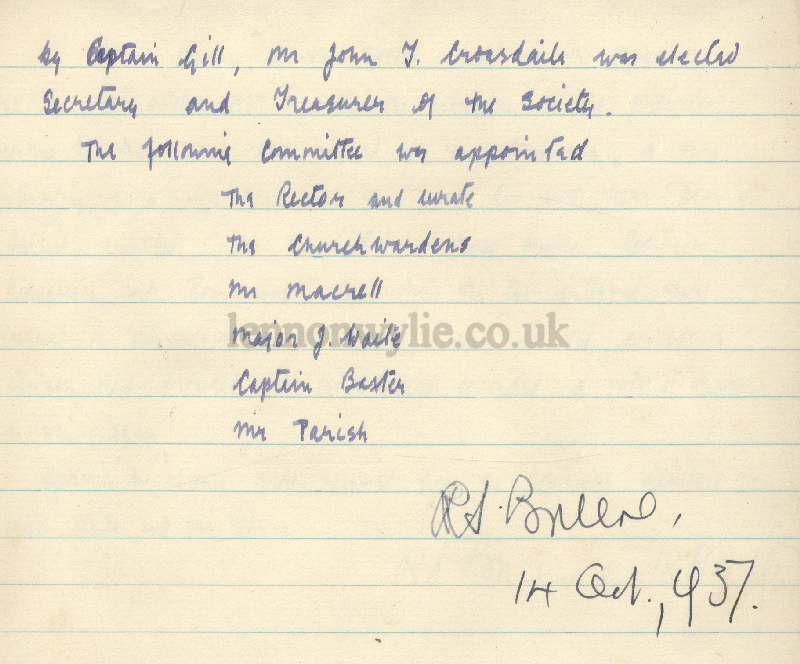 by Captain Gill, Mr John T. Croasdaile was elected
Secretary and Treasurer of the Society.
The following Committee was appointed
The Rector and curate
The Churchwardens
Mr Macrell
lennonwylie.co.uk
Major J. Waite
Captain Baxter
Mr Parish
R.S. Breene,
14 Oct., 1937.